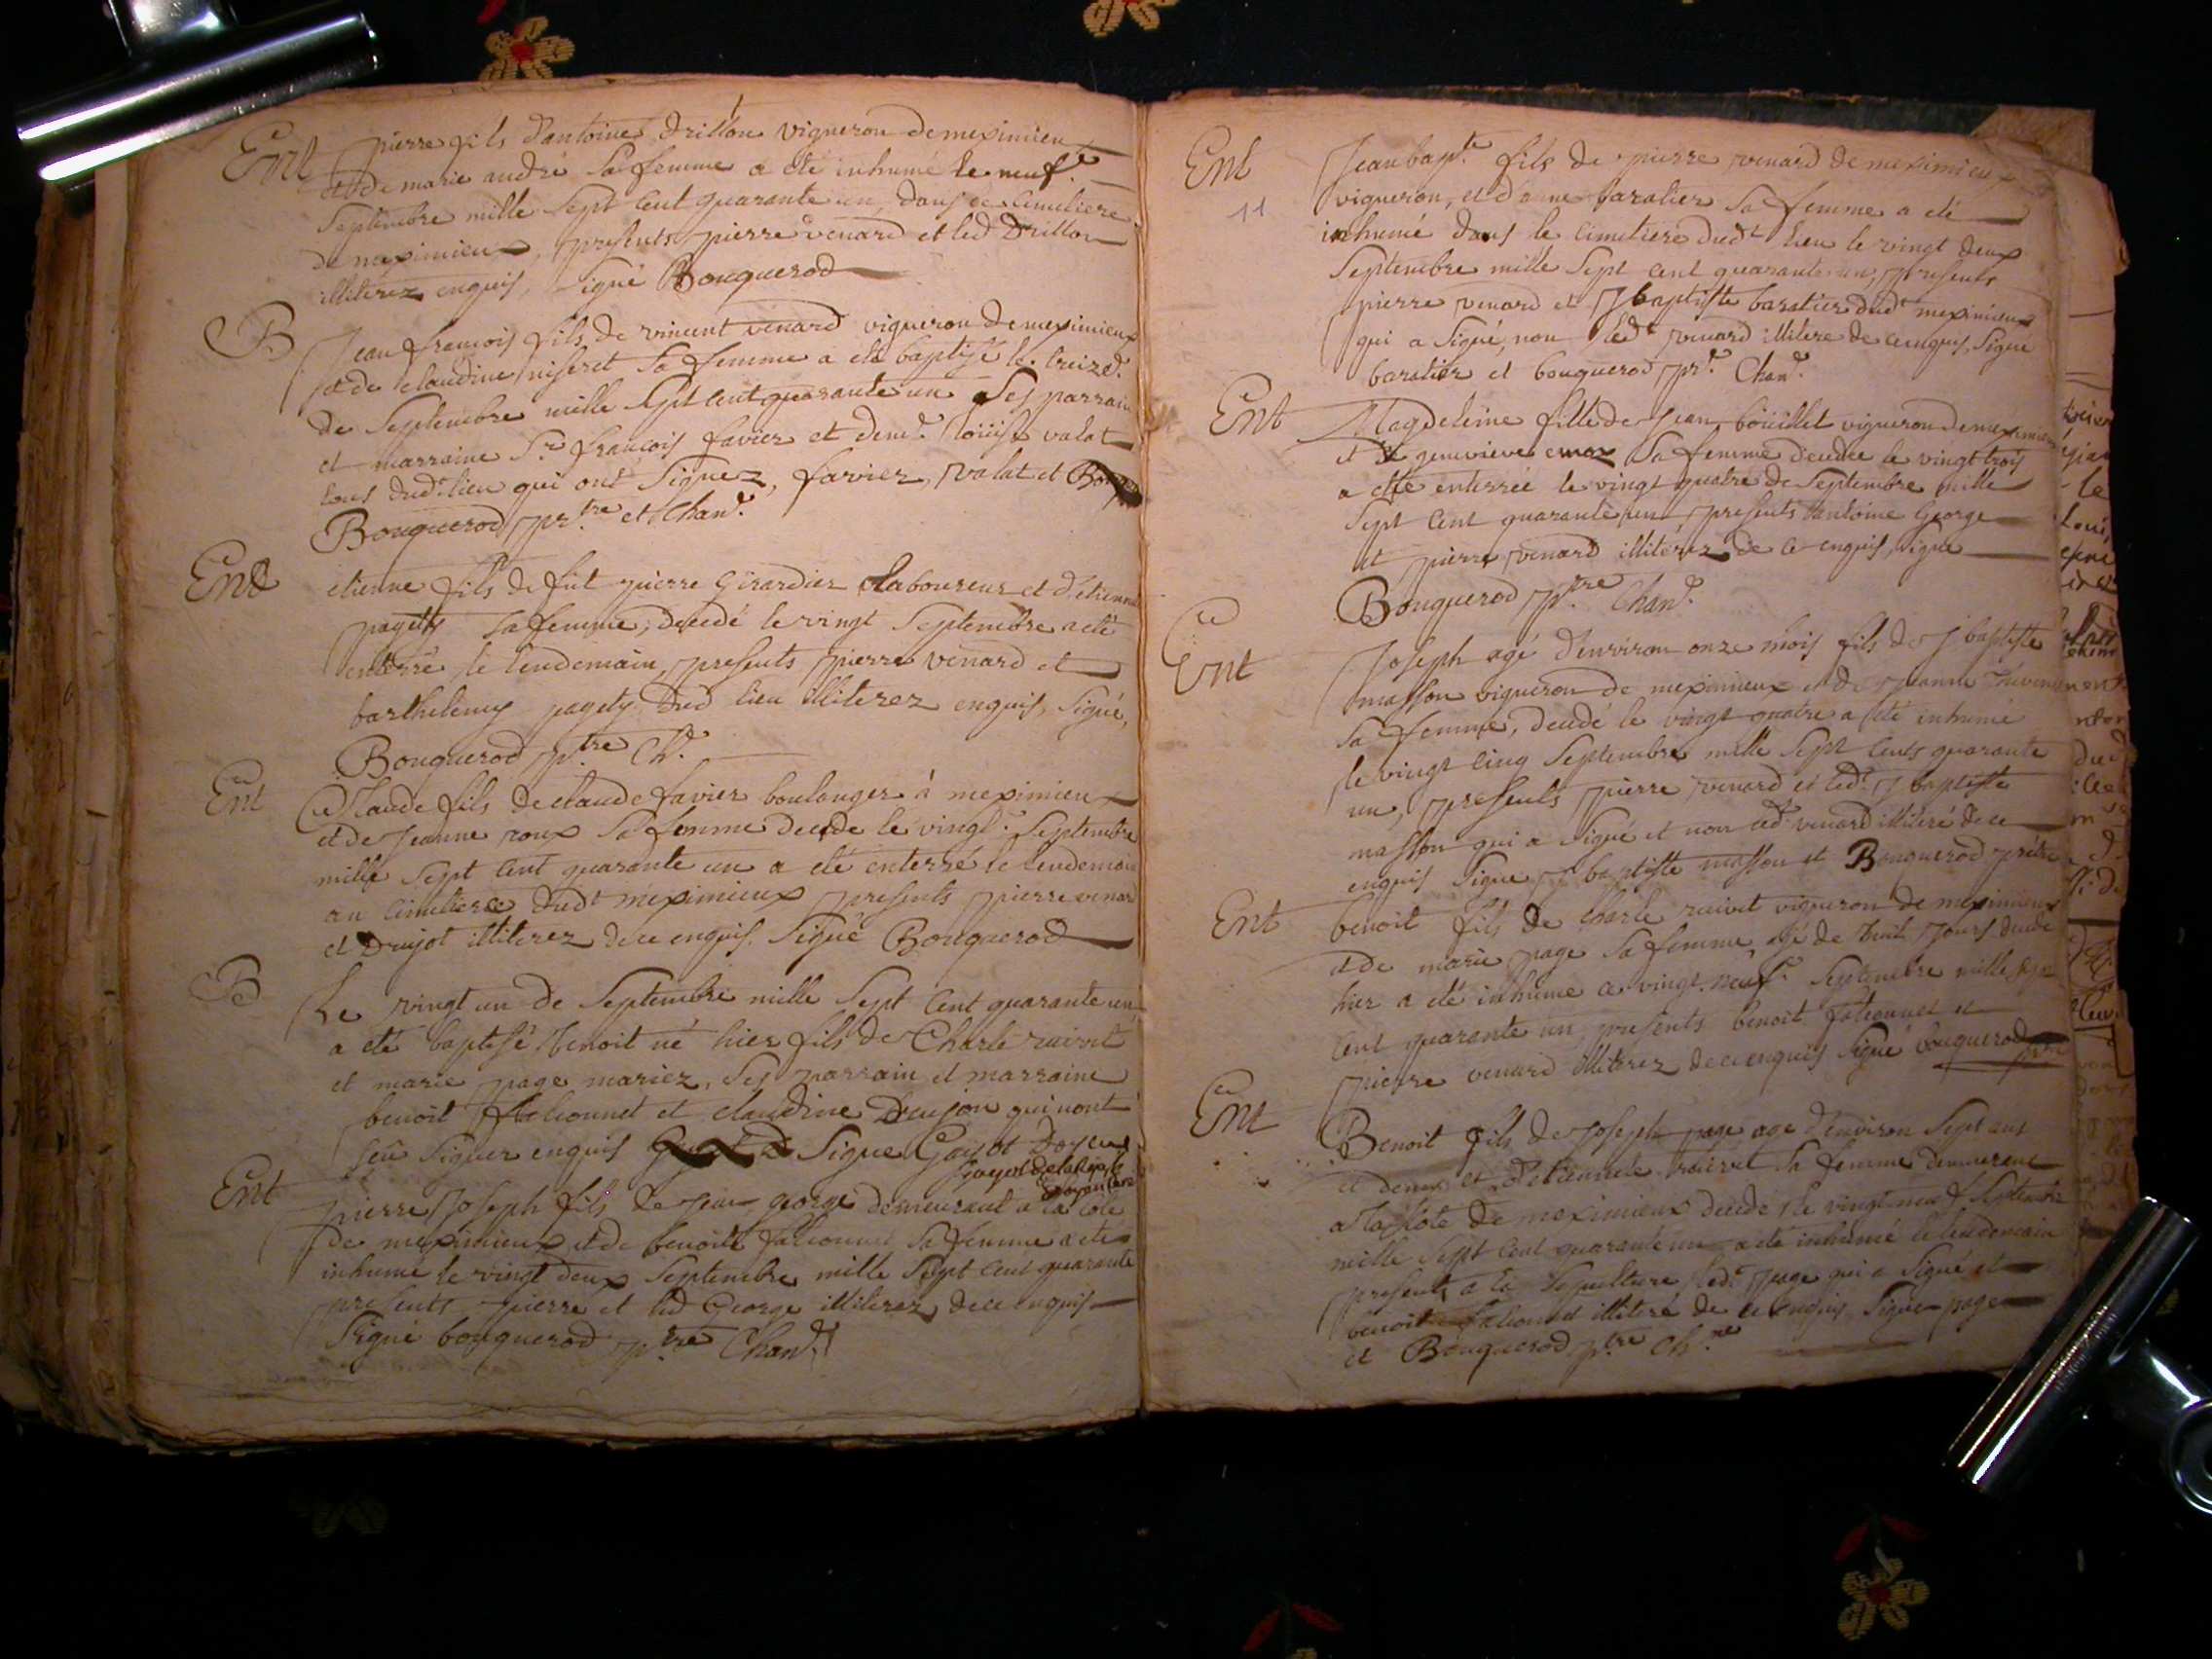 Ent
pierre fils d'antoine drillon vigneron de meximieu
et de marie andré sa femme a été inhumé le neuf.e
septembre mille sept cent quarante un, dans ce cimetiere
de meximieux, presents pierre venard et led Drillon
illiterez enquis, signé Bouquerod
B
Jean francois fils de vincent venard vigneron de meximieux
et de claudine niseret sa femme a eté baptisé le treize.e
de septembre mille sept cent quarante un ses parrain
et marraine S.r francois favier et dem.e loüise valat
tous dud.t lieu qui ont signez, favier, valat et
Bouquerod pr.tre et Chan.e
Ent
etienne fils de fût pierre Girardier laboureur et d'étienne
pagety sa femme, decedé le vingt septembre a eté
enterré le lendemain, presents pierre venard et
barthelemy pagety dud lieu illiterez enquis, signé,
Bouquerod p.tre Ch.e
Ent
Claude fils de claude favier boulanger à meximieux
et de jeanne roux sa femme decede le vingt.e septembre
mille sept cent quarante un a eté enterré le lendemain
au cimetiere dud.t meximieux presents pierre venard
et Drujot illiterez de ce enquis. signé Bouquerod
B
Le vingt un de septembre mille sept cent quarante un
a eté baptisé benoit né hier fils de Charle ruivet
et marie page mariez, ses parrain et marraine
benoit falconnet et claudine qui nont
seû signer enquis signe Gayot Doyen
Gayot
Doyen curé
Ent
pierre joseph fils de jean george demeurant a la cote
de meximieux et de benoite falconnet sa femme a eté
inhumé le vingt deux septembre mille sept cent quarante
presents pierre et led George illiterez de ce enquis
signé bouquerod p.tre Chan.e
Ent
11
Jean bapt.te fils de pierre venard de meximieux
vigneron, et d'anne baratier sa femme a eté
inhumé dans le cimetiere dud.t lieu le vingt deux
septembre mille sept cent quarante un, presents
pierre venard et J baptiste baratier dud.t meximieux
qui a signé, non led.t venard illitere de ce enquis, signe
baratier et bouquerod pr.e Chan.e
Ent
Magdeleine fille de jean boüillet vigneron de meximieux
et genevieve sa femme decedée le vingt trois
a eté enterrée le vingt quatre de septembre mille
sept cent quarante un, presents antoine George
et pierre venard illiterez de ce enquis, signe
Bouquerod p.tre Chan.e
Ent
Joseph agé d'environ onze mois fils de J baptiste
masson vigneron de meximieux et de jeanne
sa femme, decedé le vingt quatre a eté inhumé
le vingt cinq septembre mille sept cents quarante
un, presents pierre venard et led.t J baptiste
masson qui a signé et non led.t venard illiteré de ce
enquis signe J baptiste masson et Bouquerod prêtre
Ent
benoit fils de charle ruivet vigneron de meximieux
et de marie page sa femme, agé de huit jours decede
hier a eté inhumé ce vingt neuf.e septembre mille sept
cent quarante un, presents benoit falconnet et
pierre venard illiterez de ce enquis signé bouquerod
ptre
Ent
Benoit fils de joseph page age d'environ sept ans
et demy et d'etiennete sa femme demeurant
a la cote de meximieux decedé le vingt neuf septembre
mille sept cent quarante un a eté inhumé le lendemain
presents a la sepulture led.t page qui a signé et
benoit falconnet illiteré de ce enquis signe page
et Bouquerod p.tre Ch.ne